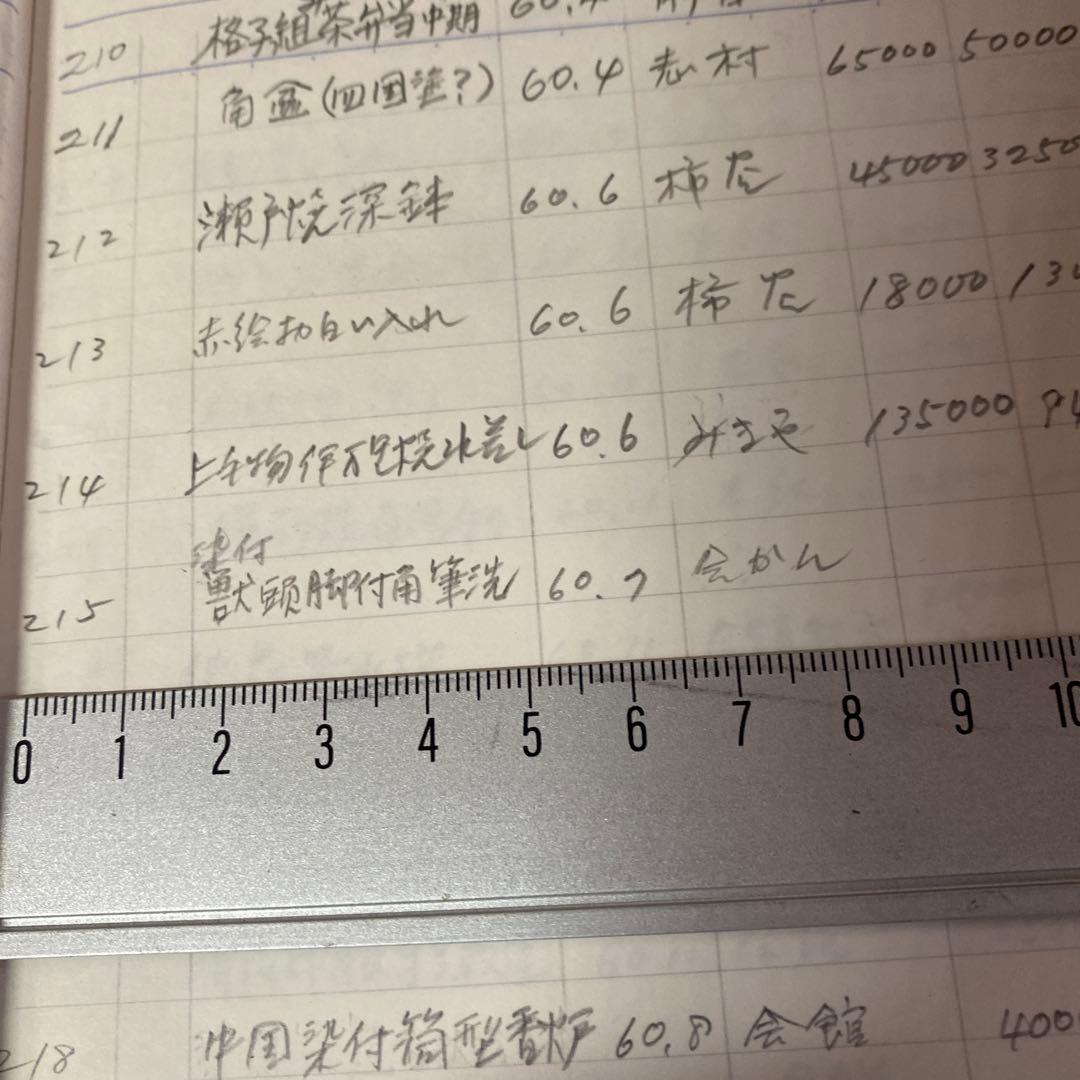 210 格子組茶弁当中期 60.4
211 角盆(四国塗?) 60.4 志村 65000 50000
212 瀬戸焼深鉢 60.6 柿 45000 3250
213 赤絵 入れ 60.6 柿 18000 130
214 上手物伊万里焼水差し 60.6 135000 94
染付
215 獣頭脚付角筆洗 60.7 会かん
0 1 2 3 4 5 6 7 8 9 10
218 中国染付筒型香炉 60.8 会館 400